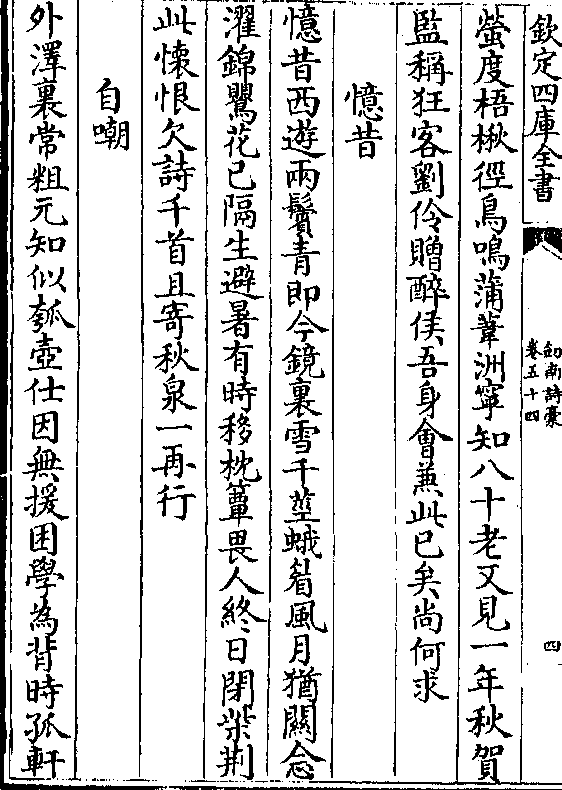 欽定四庫全書
劍南詩稾
卷五十四
四
螢度梧楸徑鳥鳴蒲葦洲寧知八十老又見一年秋賀
監稱狂客劉伶贈醉侯吾身㑹兼此已矣尚何求
憶昔
憶昔西遊兩鬢青即今鏡裏雪千莖蛾眉風月猶闗念
濯錦鸎花已隔生避暑有時移枕簟畏人終日閉柴荆
此懐恨欠詩千首且寄秋泉一再行
自嘲
外澤裏常粗元知似瓠壺仕因無援困學為背時孤軒